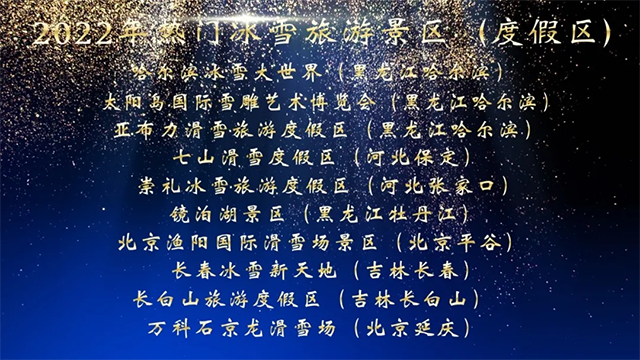 2022年热门冰雪旅游景区（度假区）
哈尔滨冰雪大世界（黑龙江哈尔滨）
太阳岛国际雪雕艺术博览会（黑龙江哈尔滨）
亚布力滑雪旅游度假区（黑龙江哈尔滨）
七山滑雪度假区（河北保定）
崇礼冰雪旅游度假区（河北张家口）
镜泊湖景区（黑龙江牡丹江）
北京渔阳国际滑雪场景区（北京平谷）
长春冰雪新天地（吉林长春）
长白山旅游度假区（吉林长白山）
万科石京龙滑雪场（北京延庆）